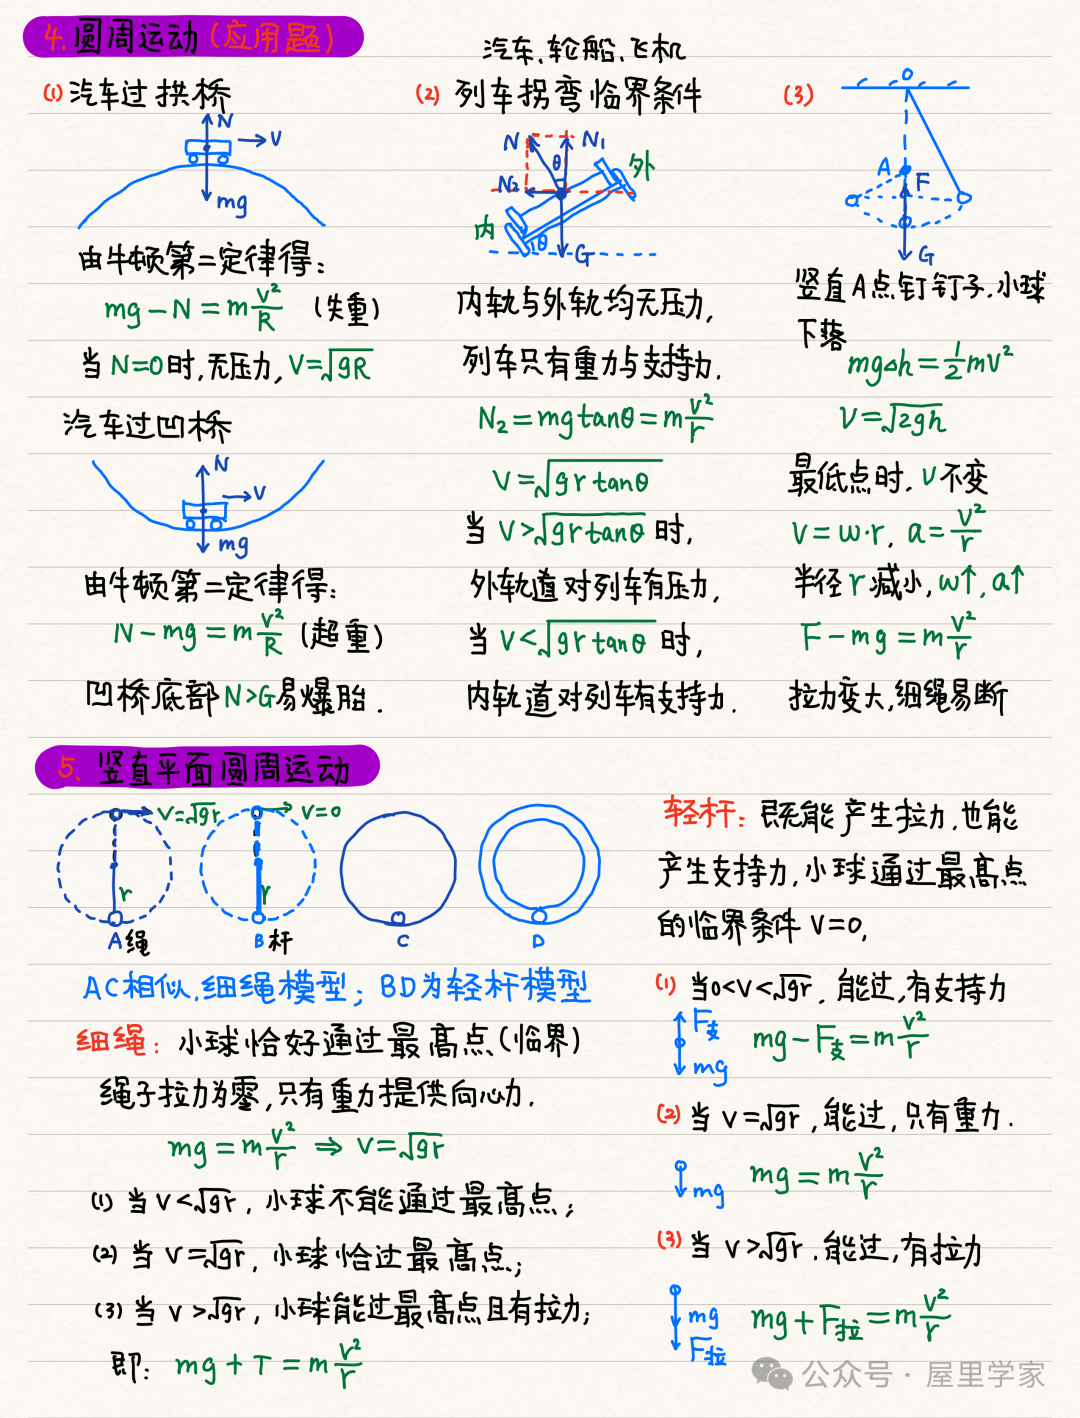 4. 圆周运动 (应用题)
(1) 汽车过拱桥
N
V
mg
由牛顿第二定律得:
mg-N=m v²/R (失重)
当N=0时,无压力,V=√gR
汽车过凹桥
N
V
mg
由牛顿第二定律得:
N-mg=m v²/R (超重)
凹桥底部N>G易爆胎.
汽车、轮船、飞机
(2) 列车拐弯临界条件
N
N₁
θ
N₂
外
内
θ
G
内轨与外轨均无压力,
列车只有重力与支持力.
N₂=mgtanθ=m v²/r
V=√grtanθ
当 V>√grtanθ 时,
外轨道对列车有压力,
当 V<√grtanθ 时,
内轨道对列车有支持力.
(3)
O
A
F
G
竖直A点钉钉子.小球
下落
mg△h=½mv²
V=√2gh
最低点时. V不变
V=w·r, a=v²/r
半径r减小,w↑,a↑
F-mg=m v²/r
拉力变大,细绳易断
5. 竖直平面圆周运动
V=√gr
r
A 绳
V=0
r
B 杆
C
D
AC相似.细绳模型; BD为轻杆模型
细绳: 小球恰好通过最高点(临界)
绳子拉力为零,只有重力提供向心力.
mg=m v²/r ⇒ V=√gr
(1) 当V<√gr, 小球不能通过最高点;
(2) 当V=√gr, 小球恰过最高点;
(3) 当V>√gr, 小球能过最高点且有拉力;
即: mg+T=m v²/r
轻杆: 既能产生拉力.也能
产生支持力,小球通过最高点
的临界条件V=0,
(1) 当0<V<√gr, 能过,有支持力
F支
mg
mg-F支=m v²/r
(2) 当V=√gr,能过,只有重力.
mg
mg=m v²/r
(3) 当V>√gr.能过,有拉力
mg
F拉
mg+F拉=m v²/r
公众号·屋里学家